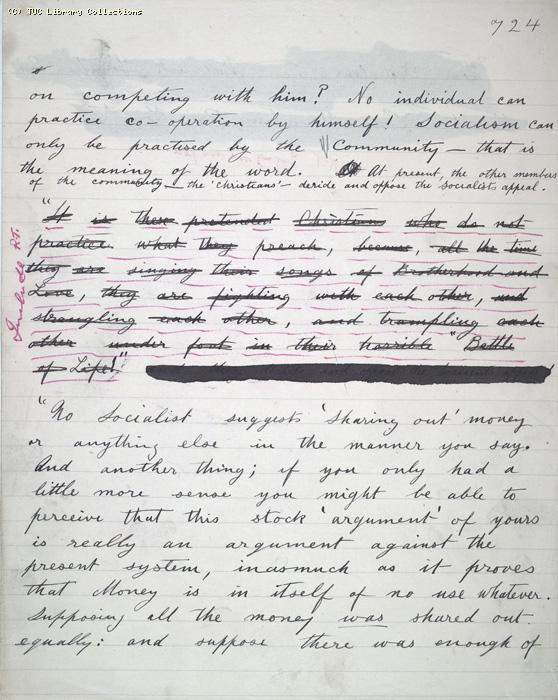 (C) TUC Library Collections
724
on competing with him? No individual can
practice co-operation by himself! Socialism can
only be practised by the Community — that is
the meaning of the word. At present, the other members
of the community — the 'christians' — deride and oppose the socialists appeal.
"It is these pretended Christians who do not
practice what they preach, because, all the time
they are singing their songs of Brotherhood and
Love, they are fighting with each other, and
strangling each other, and trampling each
other under foot in their horrible "Battle
of Life!"
Include R.T.
"No Socialist suggests 'sharing out' money
or anything else in the manner you say.
And another thing; if you only had a
little more sense you might be able to
perceive that this stock 'argument' of yours
is really an argument against the
present system, inasmuch as it proves
that Money is in itself of no use whatever.
Supposing all the money was shared out
equally: and suppose there was enough of